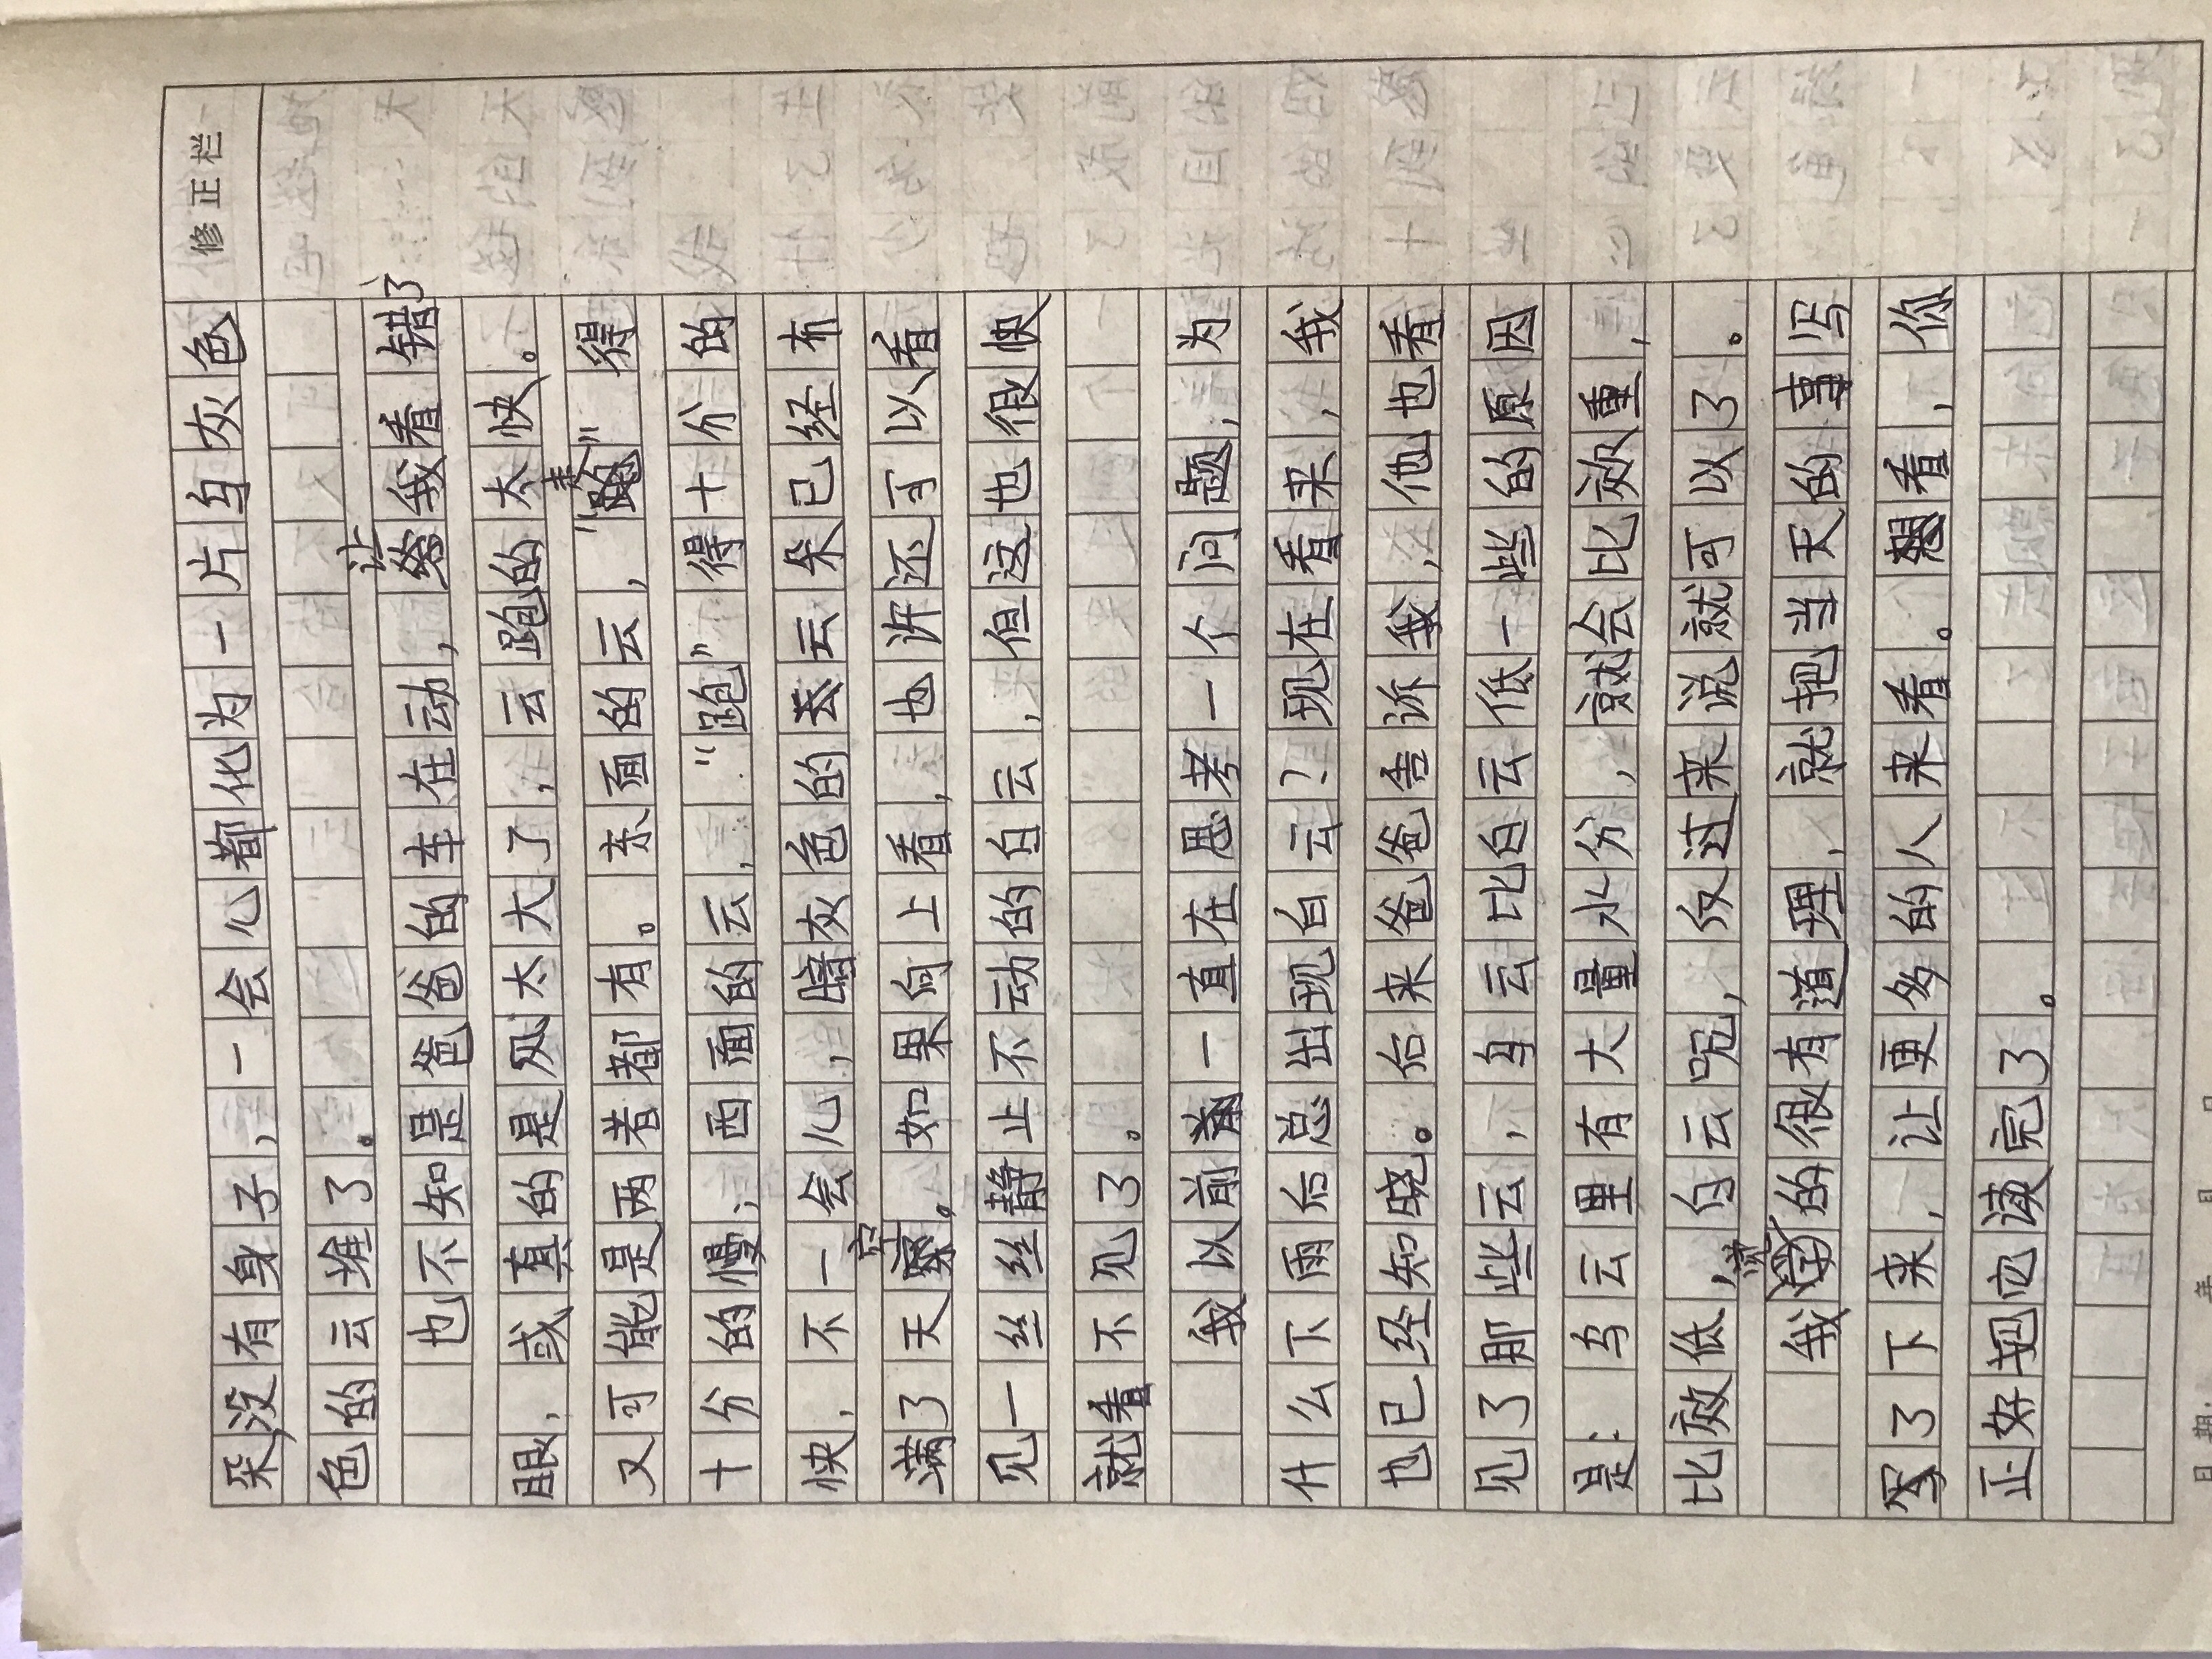 修正栏
朵没有身子，一会儿都化为一片乌灰色
色的云堆了。
也不知是爸爸的车在动，让我看错了
眼，或真的是风太大了，云跑的太快。
又可能是两者都有。东面的云，“走”得
十分的慢；西面的云，“跑”得十分的
快，不一会儿，暗灰色的云朵已经布
满了天空。如果向上看，也许还可以看
见一丝丝静止不动的白云，但这也很快
就看不见了。
我以前一直在思考一个问题，为
什么下雨后总出现白云？现在看来，我
也已经知晓。后来爸爸告诉我，他也看
见了那些云，乌云比白云低一些的原因
是：乌云里有大量水分，就会比效重，
比效低，白云呢，反过来说就可以了。
我讲的很有道理，就把当天的事写
写了下来，让更多的人来看看。想看，你
正好把它读完了。
日期： 年 月 日